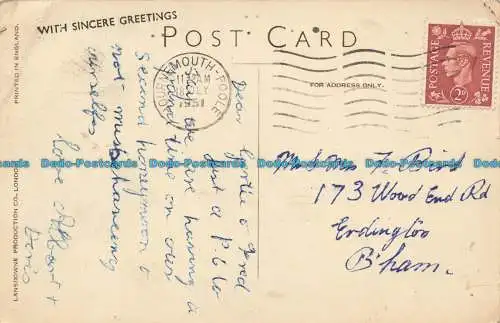 WITH SINCERE GREETINGS
POST CARD
FOR ADDRESS ONLY.
PRINTED IN ENGLAND.
LANSDOWNE PRODUCTION CO., LONDON
BOURNEMOUTH-POOLE
JULY
1951
POSTAGE
REVENUE
2D
Dear Gertie & Fred
Just a P.C. to
say we are having a
grand time on our
Second honeymoon &
not misbehaving
ourselfs
love Albert &
Doris
Mr & Mrs F. Bird
173 Wood End Rd
Erdington
B'ham.
Dodo-Postcards Dodo-Postcards Dodo-Postcards Dodo-Postcards Dodo-Postcards